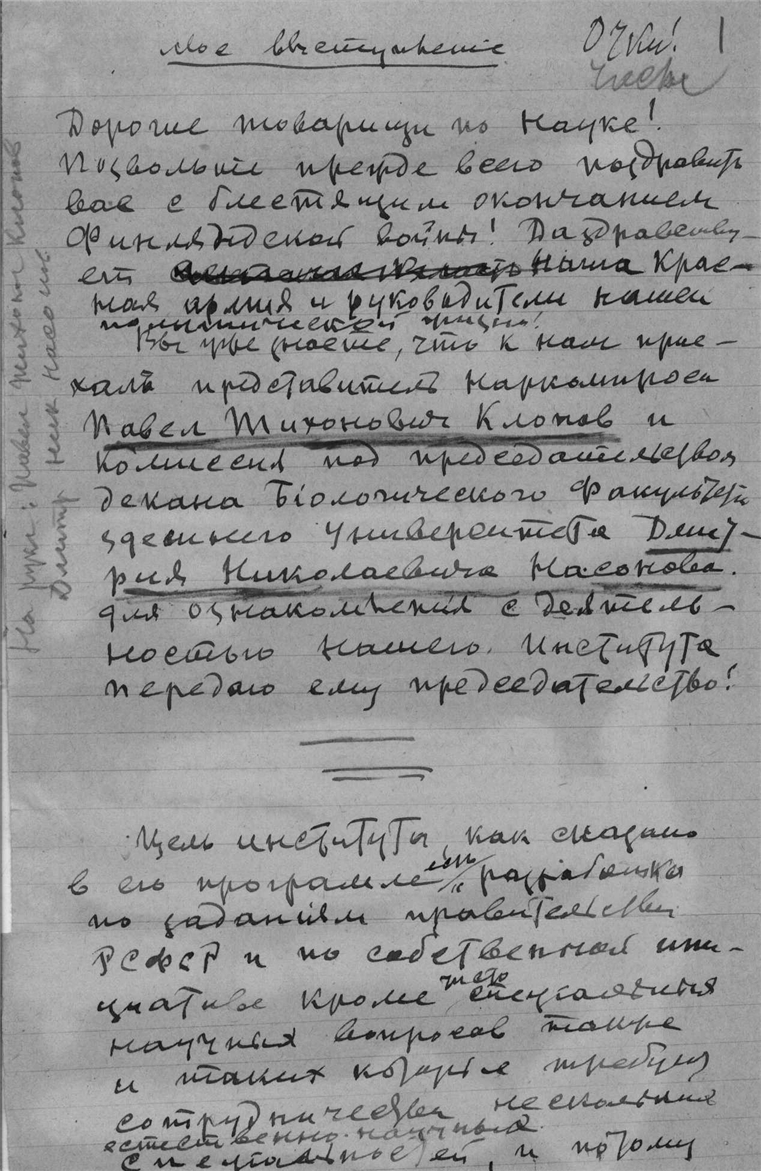 Мое выступление
Очки! 1
Часы
Дорогие товарищи по науке!
Позвольте прежде всего поздравить
вас с блестящим окончанием
Финляндской войны! Да здравству-
ет наша Крас-
ная армия и руководители нашей
политической жизни!
Вы уже знаете, что к нам прие-
халъ представитель наркомпроса
Павел Тихонович Клопов и
комиссия под председательством
декана Біологического Факультета
здешнего Университета Дмит-
рия Николаевича Насонова.
для ознакомленія с деятель-
ностью нашего Института
передаю ему председательство!
На рукг: Павел Тихонов Клопов
Дмитр Ник Насонов
Цель института, как сказано
в его программе есть "разработка
по заданіям правительства
РСФСР и по собственной ини-
циативе кроме чисто специальных
научных вопросов также
и таких которые требуют
сотрудничества нескольких
естественно-научных
специальностей, и потому